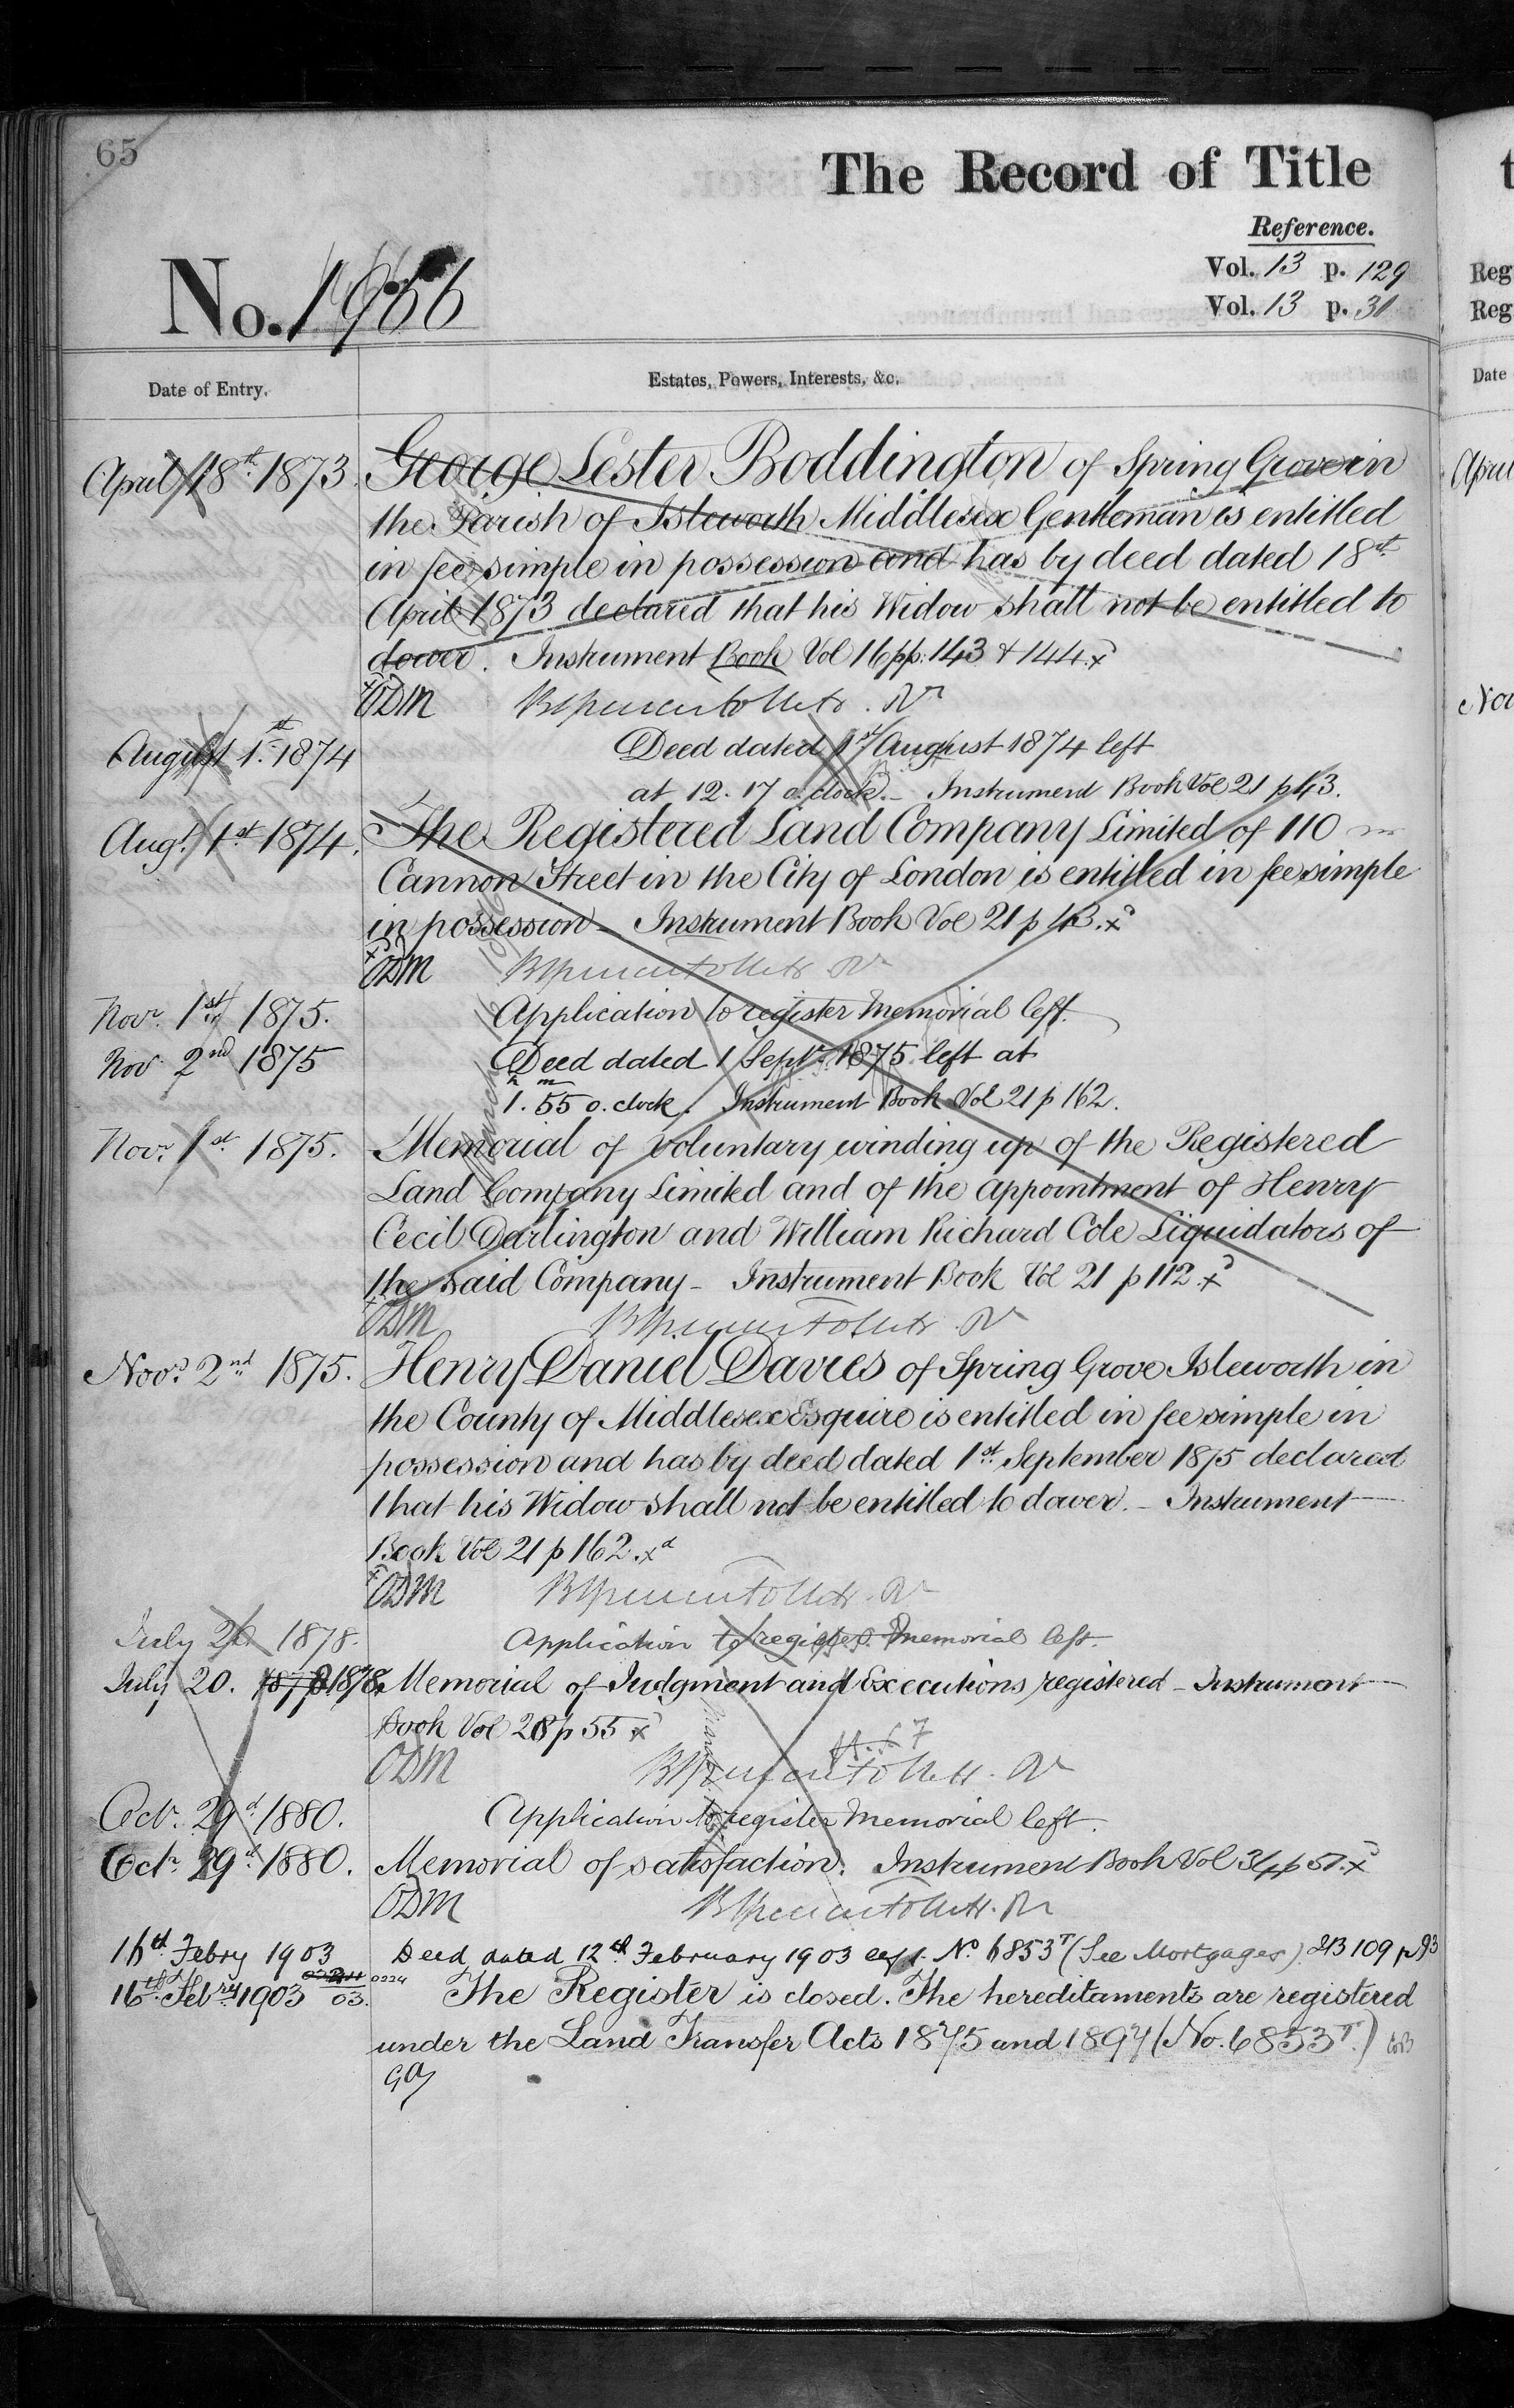 65
The Record of Title
Reference.
Vol. 13 p. 129
Vol. 13 p. 31
No. 1966
Date of Entry.
Estates, Powers, Interests, &c.
April 18th 1873. George Lester Boddington of Spring Grove in
the Parish of Isleworth Middlesex Gentleman is entitled
in fee simple in possession and has by deed dated 18th
April 1873 declared that his Widow shall not be entitled to
dower. Instrument Book Vol 16 pp. 143 & 144.
ODM
August 1st 1874 Deed dated 1st August 1874 left
at 12. 17 o.clock. – Instrument Book Vol 21 p 43.
Augt. 1st 1874. The Registered Land Company Limited of 110
Cannon Street in the City of London is entitled in fee simple
in possession – Instrument Book Vol 21 p 43.
ODM
Novr. 1st 1875. Application to register Memorial left.
Nov. 2nd 1875 Deed dated 1 Septr. 1875 left at
h m
1. 55 o. clock. Instrument Book Vol 21 p 162.
Novr. 1st 1875. Memorial of voluntary winding up of the Registered
Land Company Limited and of the appointment of Henry
Cecil Darlington and William Richard Cole Liquidators of
the said Company – Instrument Book Vol 21 p 112.
ODM
Novr. 2nd 1875. Henry Daniel Davies of Spring Grove Isleworth in
the County of Middlesex Esquire is entitled in fee simple in
possession and has by deed dated 1st September 1875 declared
that his Widow shall not be entitled to dower. – Instrument
Book Vol 21 p 162.
ODM
July 20 1878. Application to register Memorial left.
July 20. 1878 Memorial of Judgment and Executions registered – Instrument
Book Vol 28 p 55
ODM
Octr. 29d 1880. Application to register Memorial left.
Octr. 29d 1880. Memorial of satisfaction. Instrument Book Vol 34 p 57.
ODM
16th Febry 1903 Deed dated 12th February 1903 left. No. 6853T (See Mortgages) 109 p 93
16th Febry 1903 0224 03. The Register is closed. The hereditaments are registered
under the Land Transfer Acts 1875 and 1897 (No. 6853T.)